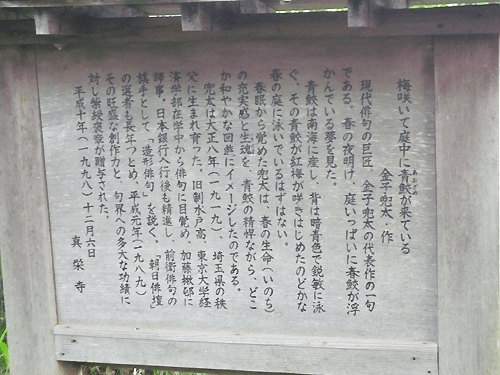 梅咲いて庭中に青鮫が来ている
あおざめ
金子兜太 作
現代俳句の巨匠、金子兜太の代表作の一句
である。春の夜明け、庭いっぱいに春鮫が浮
かんでいる夢を見た。
青鮫は南海に産し、背は暗青色で鋭敏に泳
ぐ、その青鮫が紅梅が咲きはじめたのどかな
春の庭に泳いでいるはずはない。
春眠から覚めた兜太は、春の生命(いのち)
の充実感と生魂を、青鮫の精悍ながら、どこ
か和やかな回遊にイメージしたのである。
兜太は大正八年(一九一九)、埼玉県の秩
父に生まれ育った。旧制水戸高、東京大学経
済学部在学中から俳句に目覚め、加藤楸邨に
師事。日本銀行入行後も精進し、前衛俳句の
旗手として、「造形俳句」を説く。「朝日俳壇」
の選者も長年つとめ、平成元年(一九八九)
その旺盛な創作力と、句界への多大な功績に
対し紫綬褒章が贈与された。
平成十年(一九九八)十二月六日
真栄寺